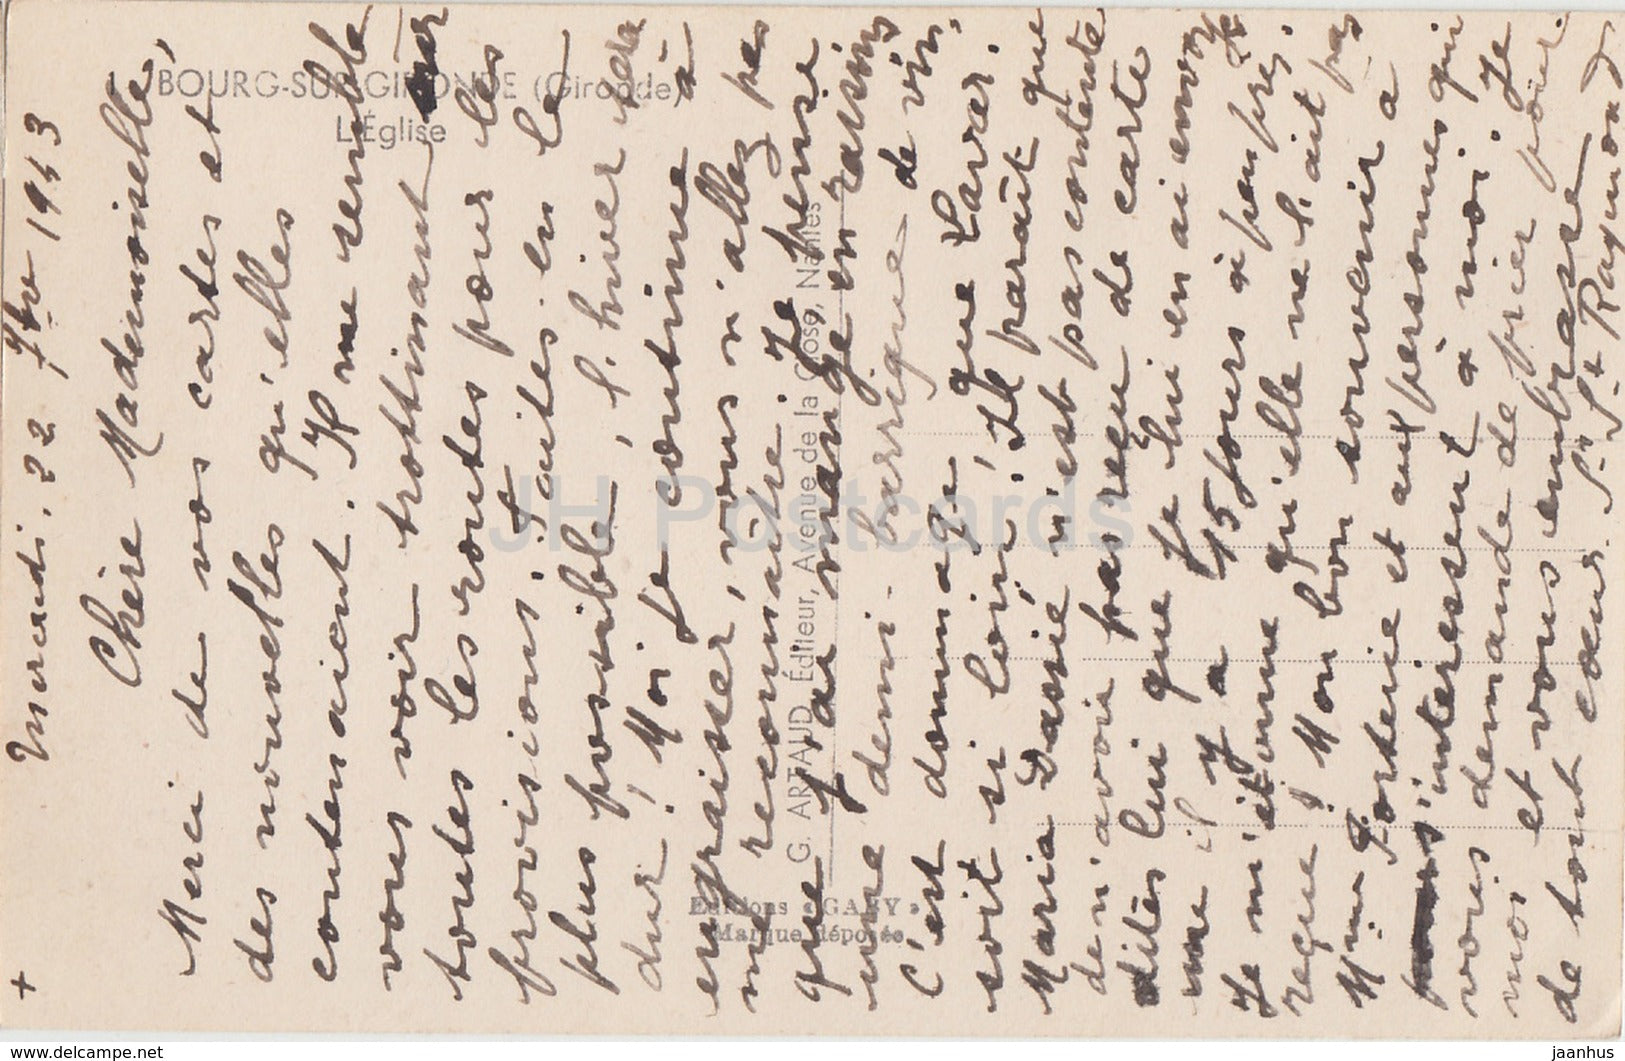 +
Mercredi, 22 7bre 1943
Chère Mademoiselle,
Merci de vos cartes et
des nouvelles qu'elles
contenaient. Il me semble
vous voir trottinant sur
toutes les routes pour les
provisions. Faites-en le
plus possible, l'hiver sera
dur! Moi je continue à
engraisser, vous n'allez pas
me reconnaître. Je pense
que j'ai mangé en raisins
une demi-barrique de vin.
C'est dommage que Lavar.
soit si loin! Il paraît que
Maria Dassié n'est pas contente
de n'avoir pas reçu de carte
dites lui que je lui en ai envoyé
une il y a 15 jours à peu près. Je
Je m'étonne qu'elle ne l'ait pas
reçue! Mon bon souvenir à
Mme et aux personnes qui
s'intéressent à moi. Je
vous demande de prier pour
moi et vous embrasse
de tout cœur. Sr St Raymond
BOURG-SUR-GIRONDE (Gironde)
L'Église
G. ARTAUD, Éditeur, Avenue de la Close, Nantes
Editions "GABY"
Marque déposée
JH Postcards
delcampe.net
jaanhus